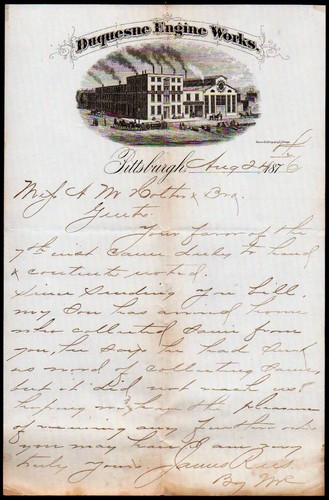 Duquesne Engine Works.
Pittsburgh, Aug 24 1876
Mess A M Holter & Bro
Gents
Your favor of the
7th inst came to hand
& contents noted.
Since sending you bill
my Son has arrived home
who collected same from
you, he says he had sent
us word of collecting same
but it did not reach us
hoping we may have the pleasure
of receiving any further orders
you may have I am very
truly yours James Rees
By